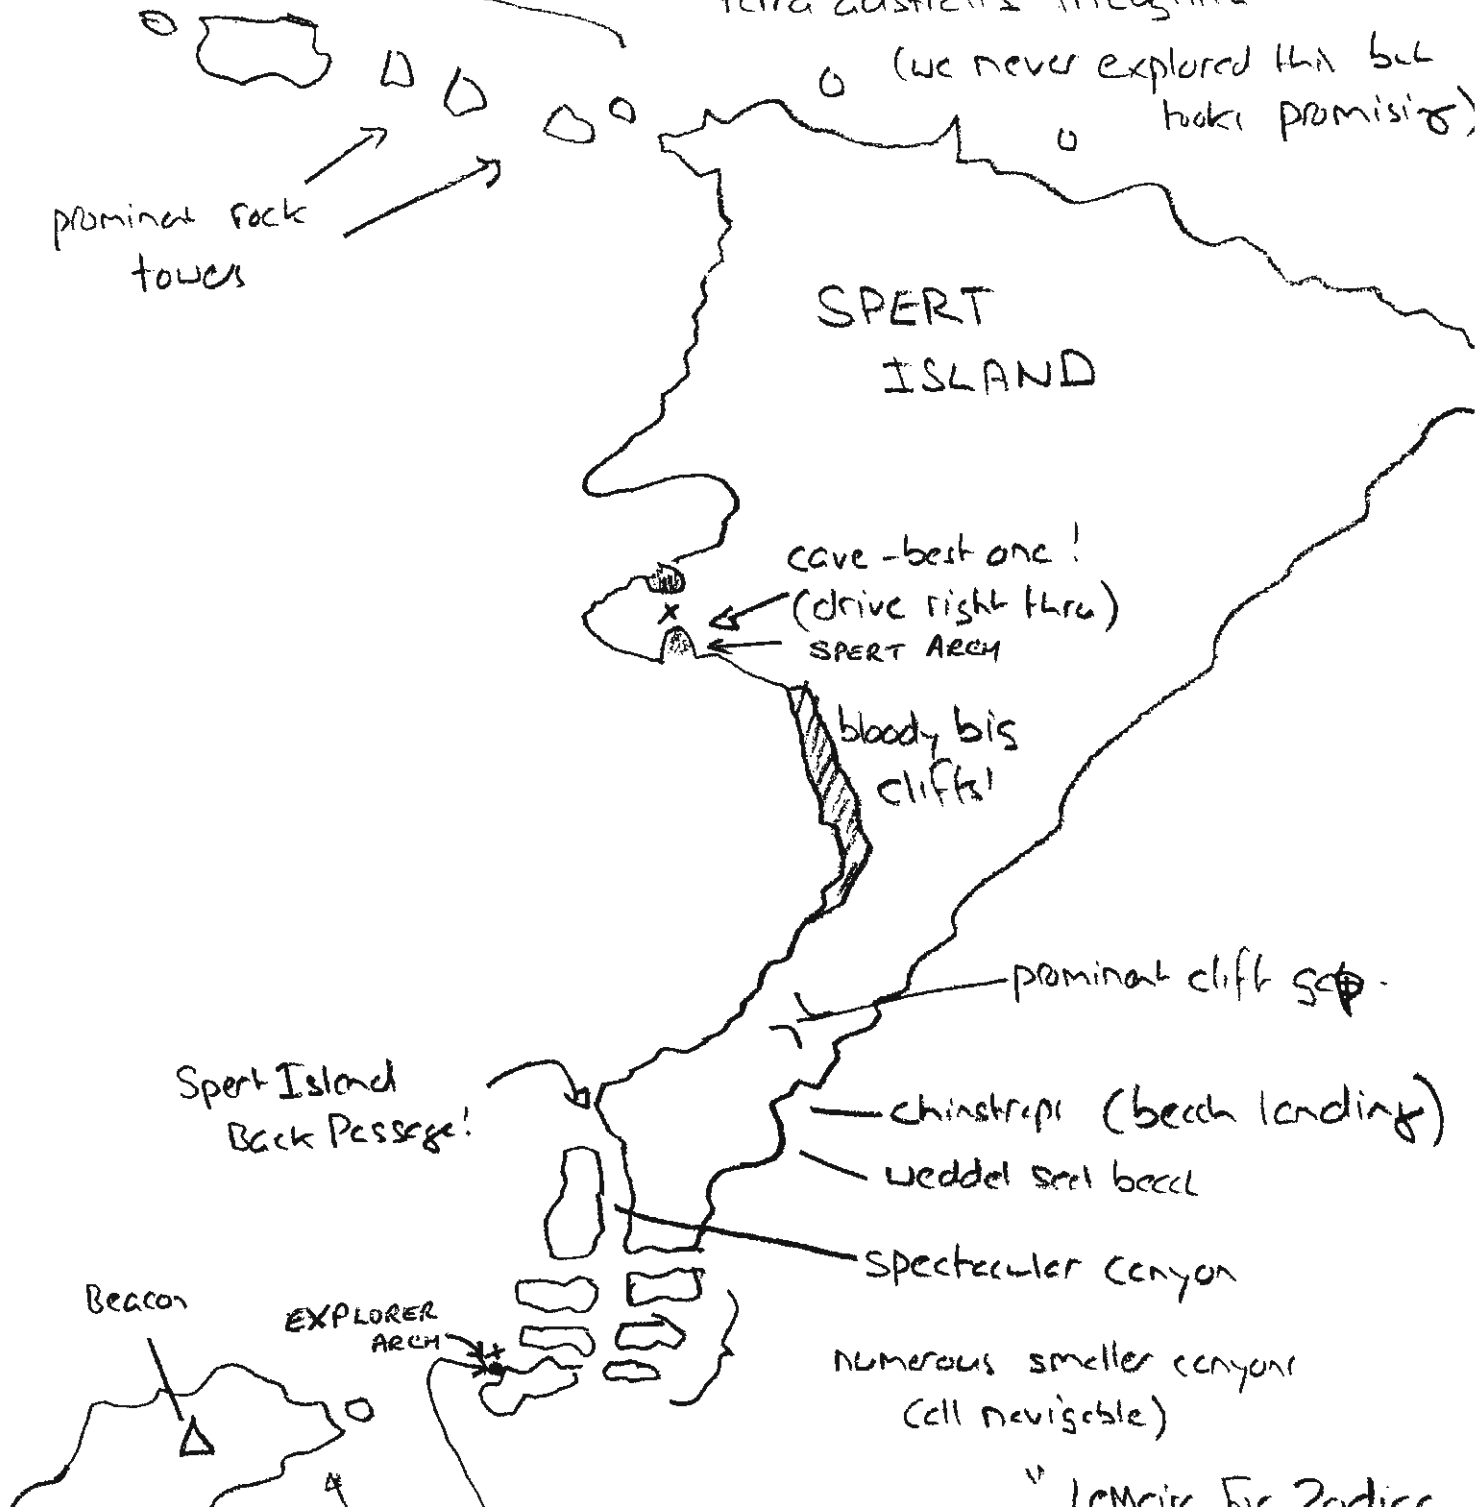 terra australis incognita
(we never explored this but
looks promising)
prominent rock
towers
SPERT
ISLAND
cave - best one!
(drive right thru)
SPERT ARCH
bloody big
cliffs!
prominent clift gap.
Spert Island
Back Passage!
chinstraps (beach landing)
weddel seal beach
spectacular canyon
Beacon
EXPLORER
ARCH
numerous smaller canyons
(all navigable)
for Zodiac